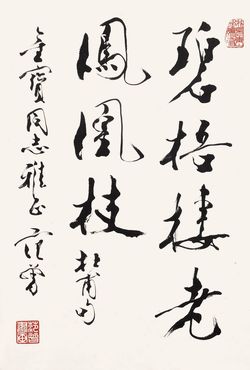 碧梧棲老
鳳凰枝 杜甫句
金寶同志雅正 范曾